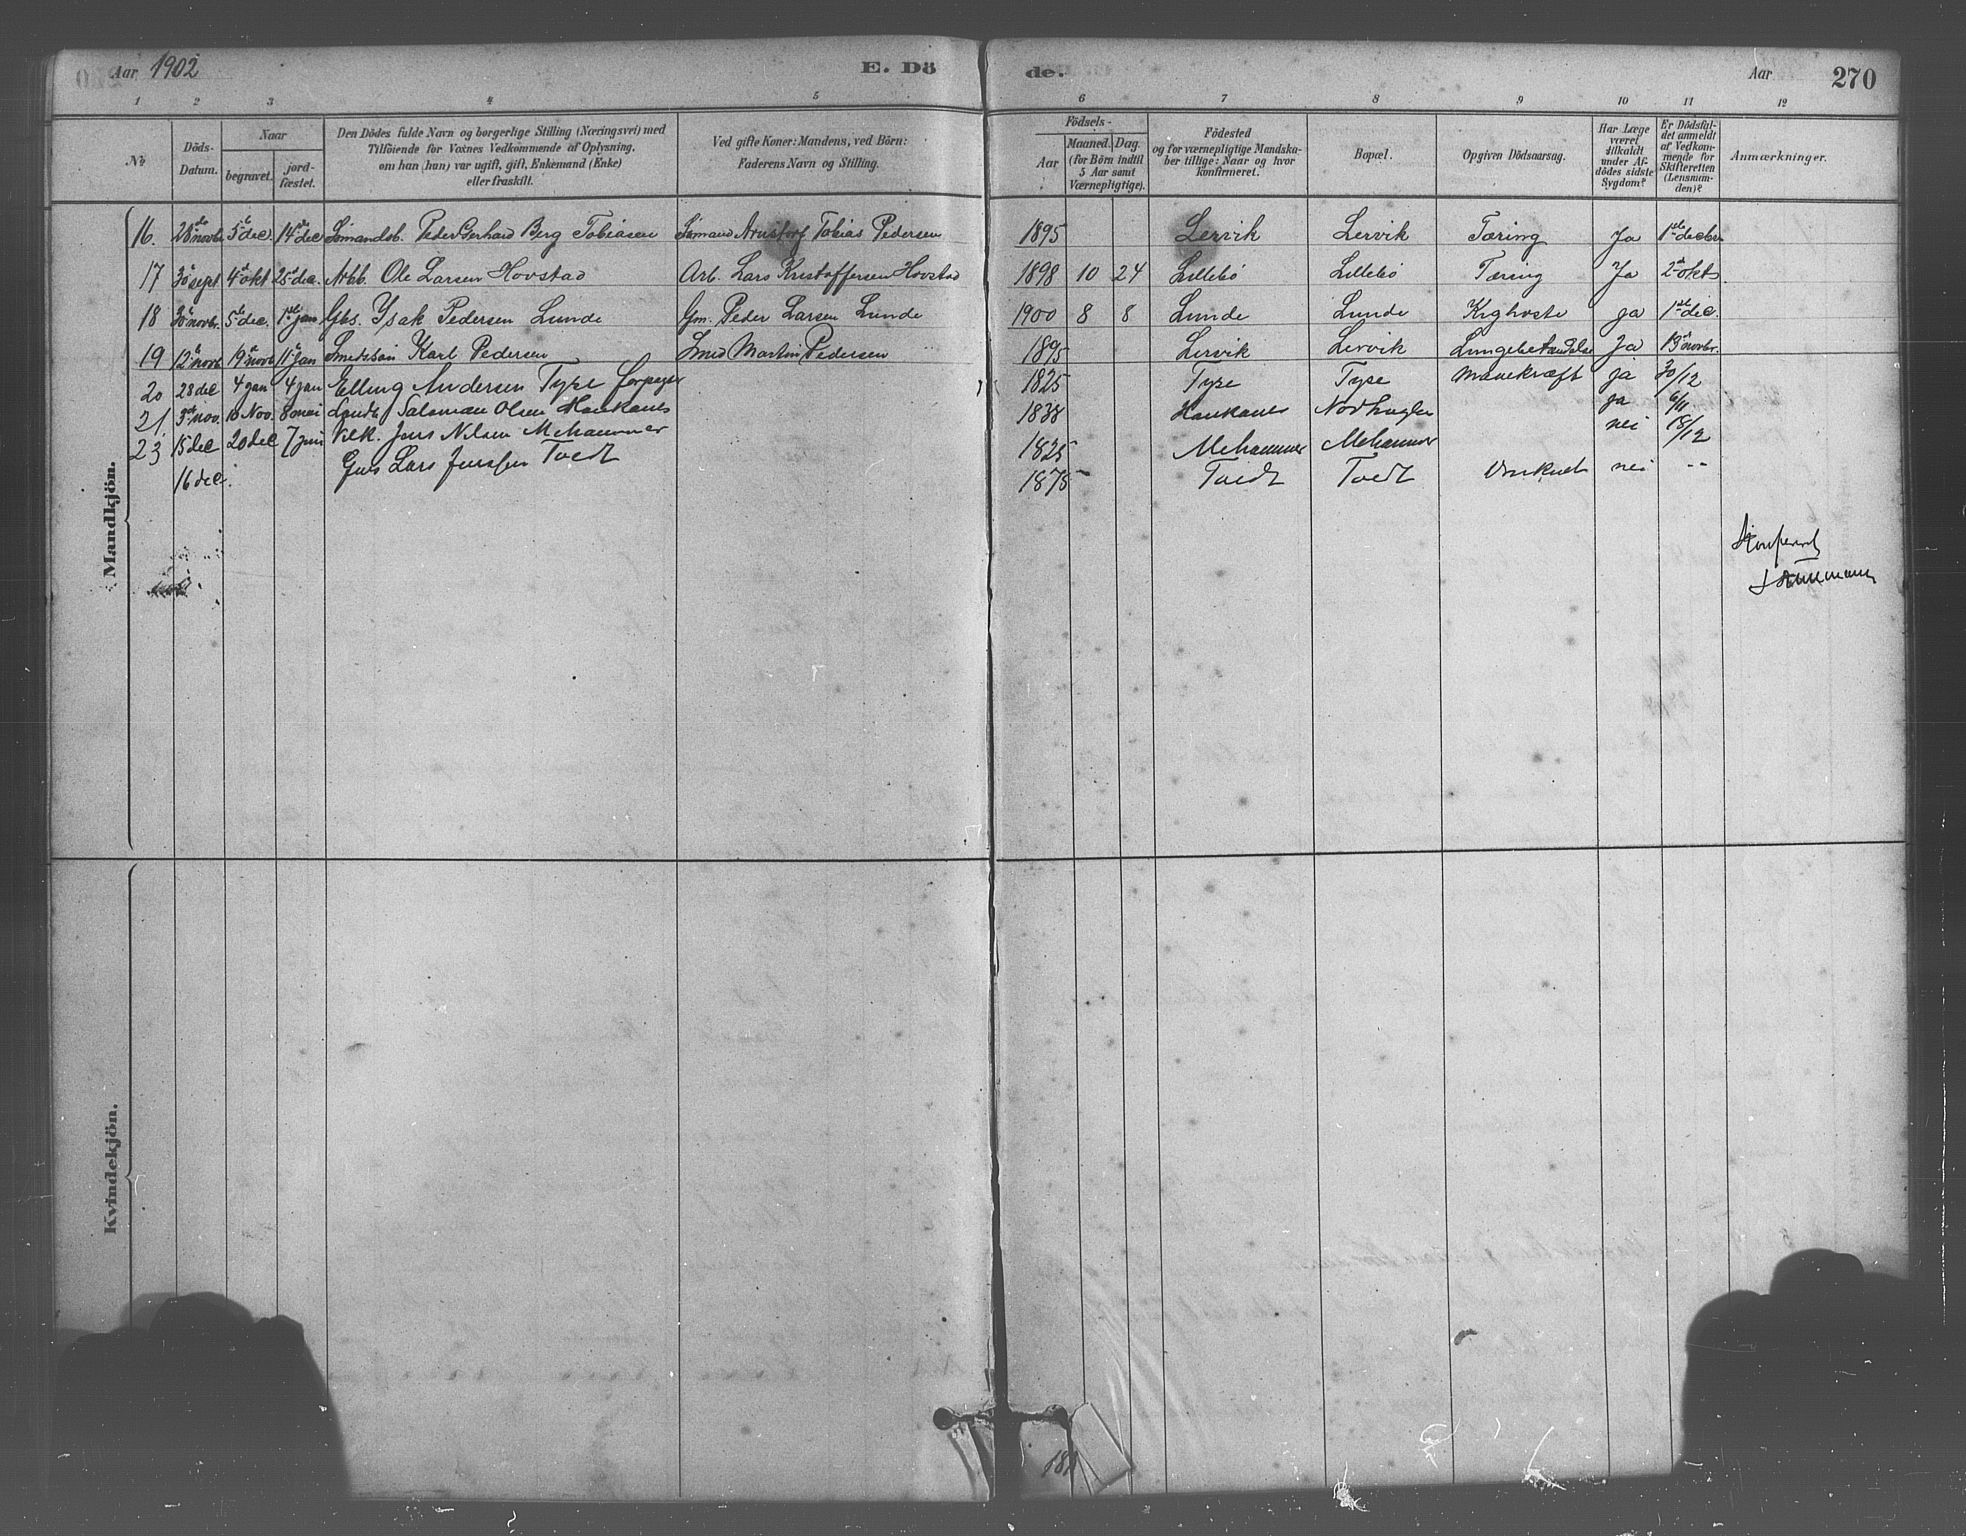 Aar 1902 E. Dö de. Aar 270
1 2 3 4 5 6 7 8 9 10 11 12
No
Döds-Datum.
Naar
begravet.
jordfæstet.
Den Dödes fulde Navn og borgerlige Stilling (Næringsvei) med
Tilföiende for Voxnes Vedkommende af Oplysning,
om han (hun) var ugift, gift, Enkemand (Enke)
eller fraskilt.
Ved gifte Koner: Mandens, ved Börn:
Faderens Navn og Stilling.
Födsels-
Aar
Maaned. Dag.
(for Börn indtil
5 Aar samt
Værnepligtige).
Födested
og for værnepligtige Mandska-
ber tillige: Naar og hvor
konfirmeret.
Bopæl.
Opgiven Dödsaarsag.
Har Læge
været
tilkaldt
under Af-
dödes sidste
Sygdom?
Er Dödsfal-
det anmeldt
af Vedkom-
mende for
Skifteretten
(Lensman-
den)?
Anmærkninger.
Mandkjön.
16. 28de novbr 5te dec. 14de dec Sømandsb. Peder Gerhard Berg Tobiasen Sømand Tobias Pedersen 1895 Lervik Lervik Tæring Ja 1ste decbr
17 30te sept 4de okt 25de dec. Arbb. Ole Larsen Hovstad Arb. Lars Kristoffersen Hovstad 1898 10 24 Lillebö Lillebö Tæring Ja 2de okt
18 30te novbr. 5te dec. 1ste jan Gbs. Ysak Pedersen Lunde Gm. Peder Larsen Lunde 1900 8 8 Lunde Lunde Kighoste ja 1ste dec.
19 12te novb 19de novb 11te Jan Smedssön Karl Pedersen Smed Martin Pedersen 1895 Lervik Lervik Lungebetændelse Ja 19de novbr.
20 28 dec 4 jan 4 jan Elling Andersen Tyse 1825 Tyse Tyse Mavekræft ja 30/12
21. 3die nov. 10 Nov. 8 mai Salamon Olsen Haukanes 1838 Haukanes Nordhuglen ja 6/11
23 15 dec 20 dec 7 Juni Jens Nilsen Mehammer 1825 Mehammer Mehammer nei 18/12
16 dec. Lars Jenssen Tvedt 1875 Tvedt Tvedt Druknet nei --
Kvindekjön.
181